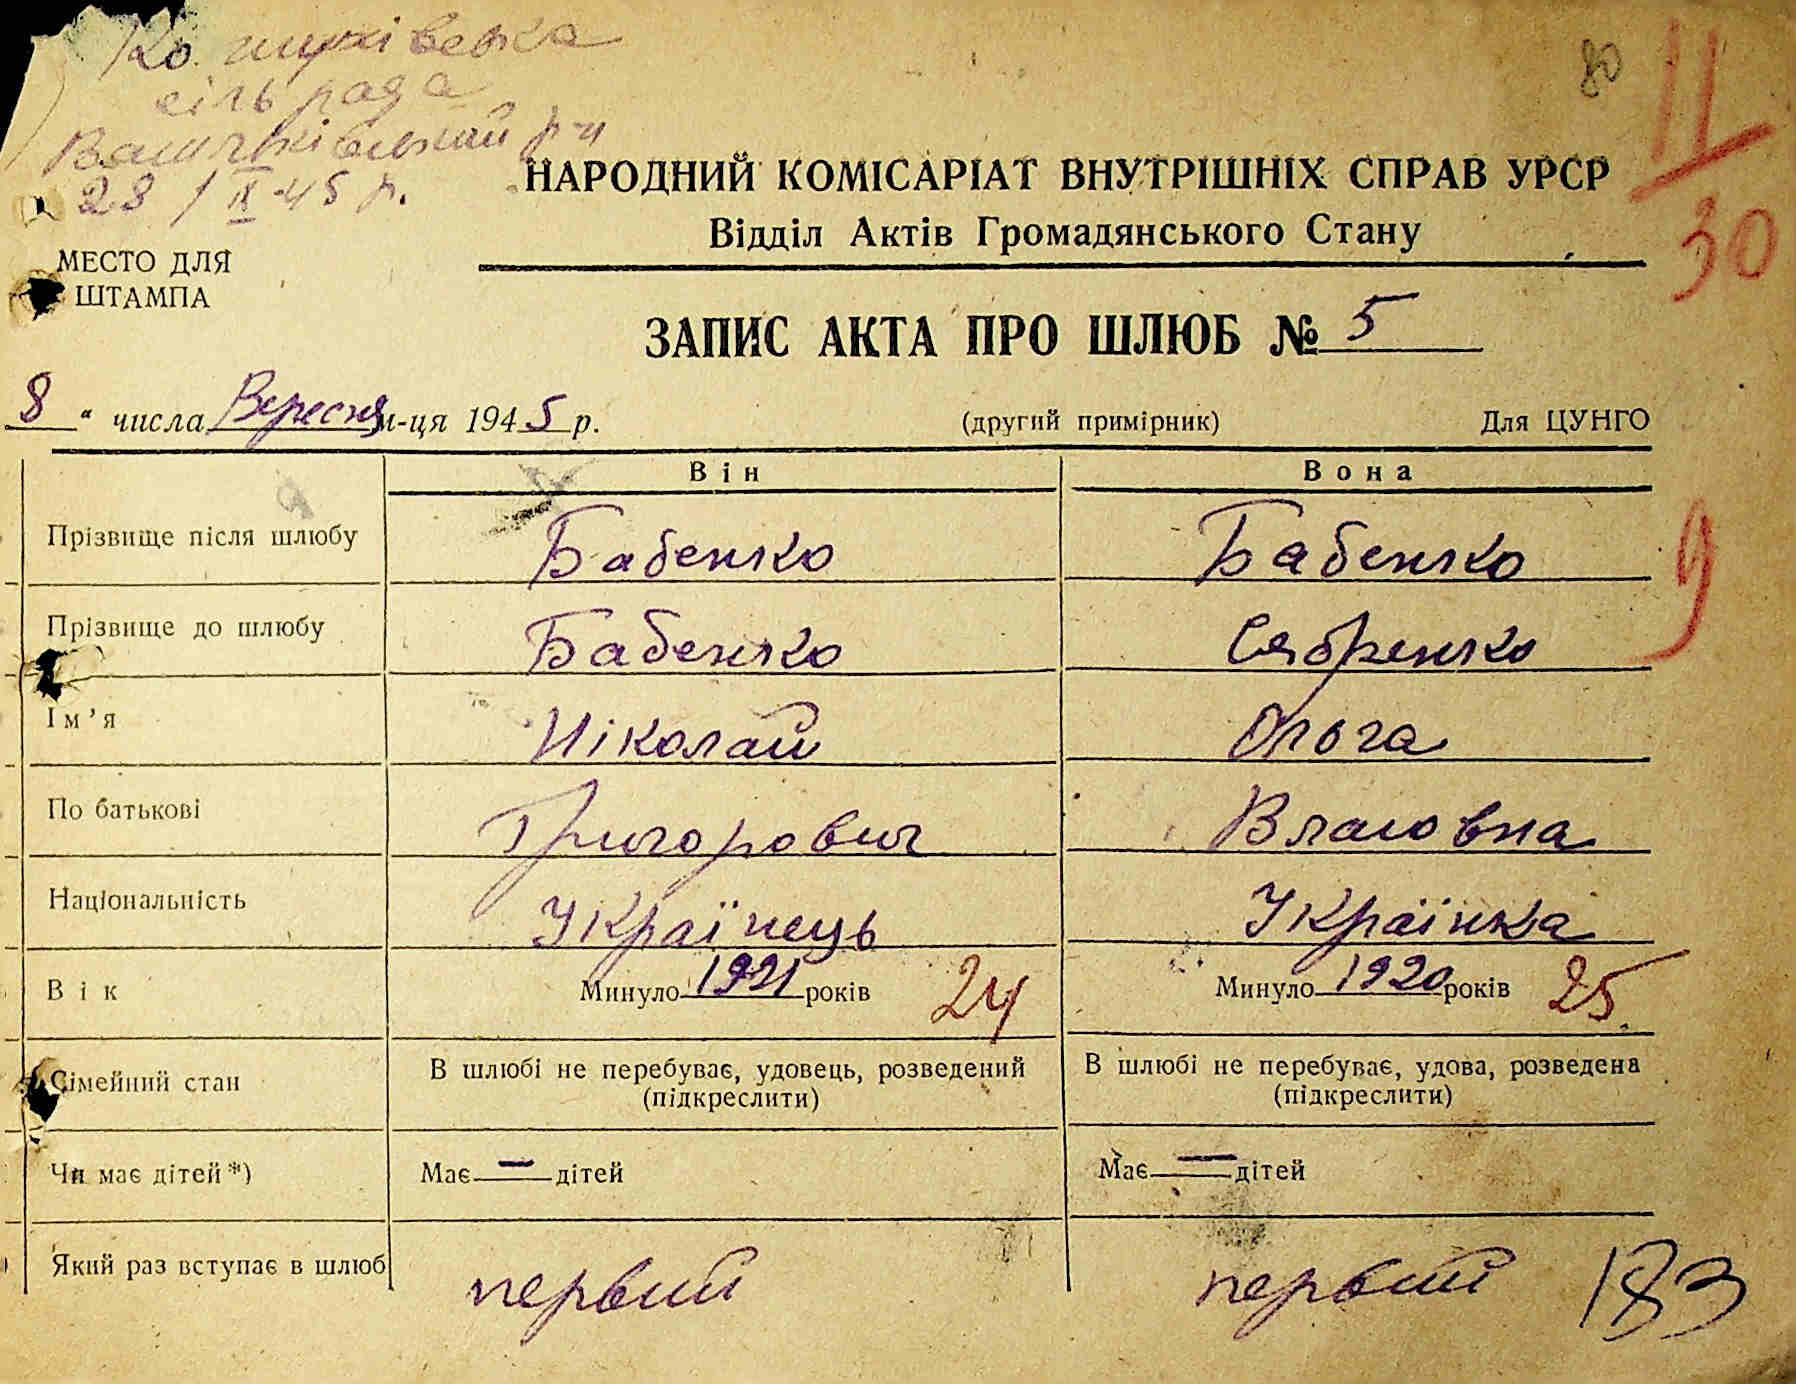 сільрада
р-н
28 / ІХ 45 р.
80
11
30
НАРОДНИЙ КОМІСАРІАТ ВНУТРІШНІХ СПРАВ УРСР
Відділ Актів Громадянського Стану
МЕСТО ДЛЯ
ШТАМПА
ЗАПИС АКТА ПРО ШЛЮБ № 5
8 " числа Вересня м-ця 1945 р. (другий примірник) Для ЦУНГО
Він Вона
Прізвище після шлюбу Бабенко Бабенко
9
Прізвище до шлюбу Бабенко Сябренко
Ім'я Ніколай Ольга
По батькові Григорович Власовна
Національність Українець Українка
Вік Минуло 1921 років 24 Минуло 1920 років 25
Сімейний стан В шлюбі не перебуває, удовець, розведений (підкреслити) В шлюбі не перебуває, удова, розведена (підкреслити)
Чи має дітей*) Має — дітей Має — дітей
Який раз вступає в шлюб первий первий
183